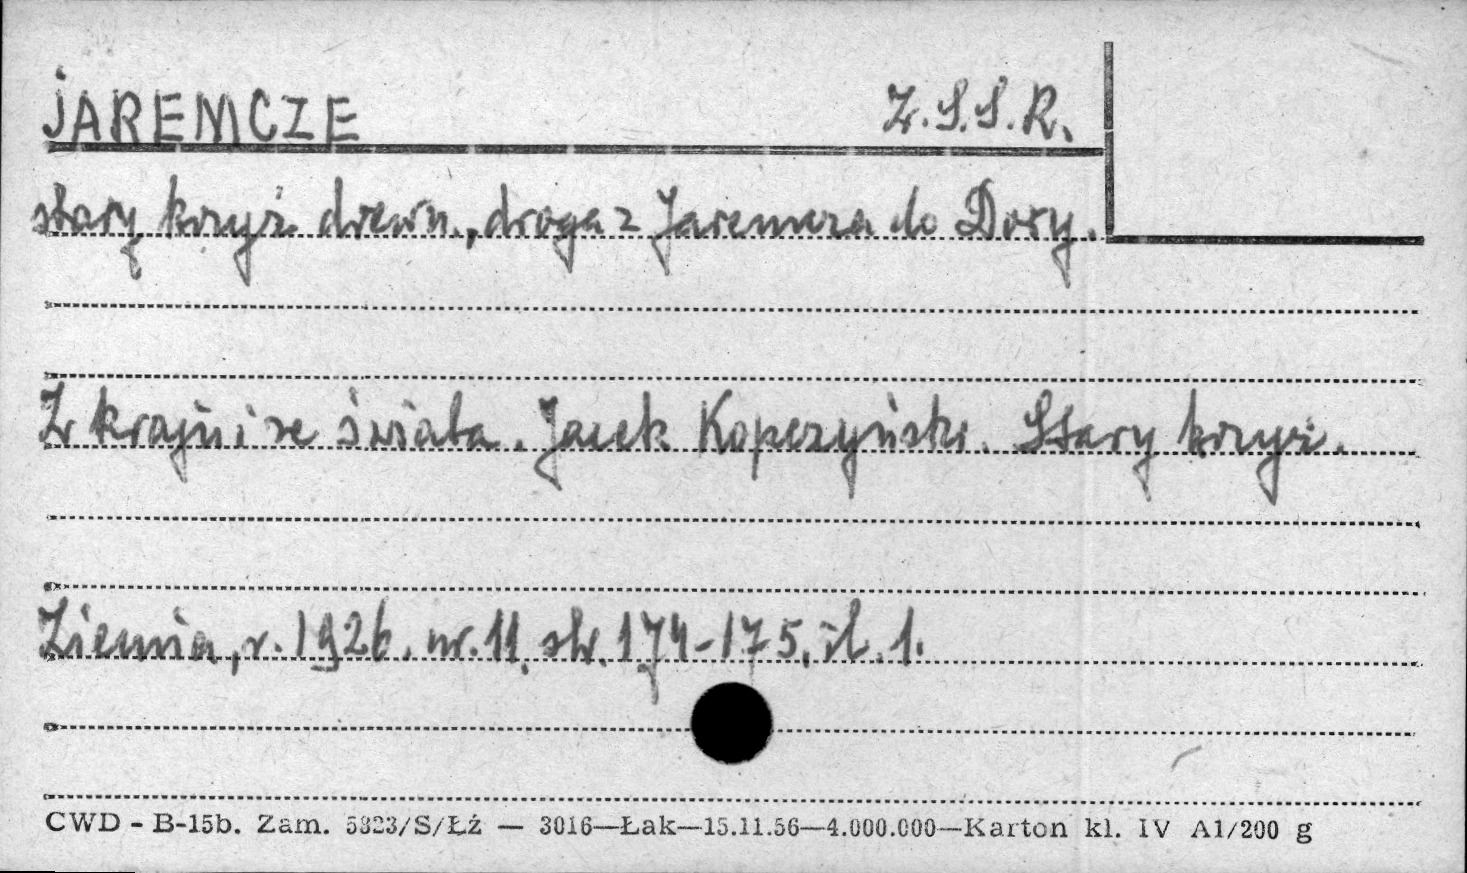 JAREMCZE Z.S.S.R.
stary krzyż drewn., droga z Jaremcza do Dory.
Z kraju i ze świata. Jacek Kopczyński. Stary krzyż.
Ziemia, r. 1926. nr. 11, str. 174-175, il. 1.
CWD - B-15b. Zam. 5323/S/Łź — 3016—Łak—15.11.56—4.000.000—Karton kl. IV A1/200 g